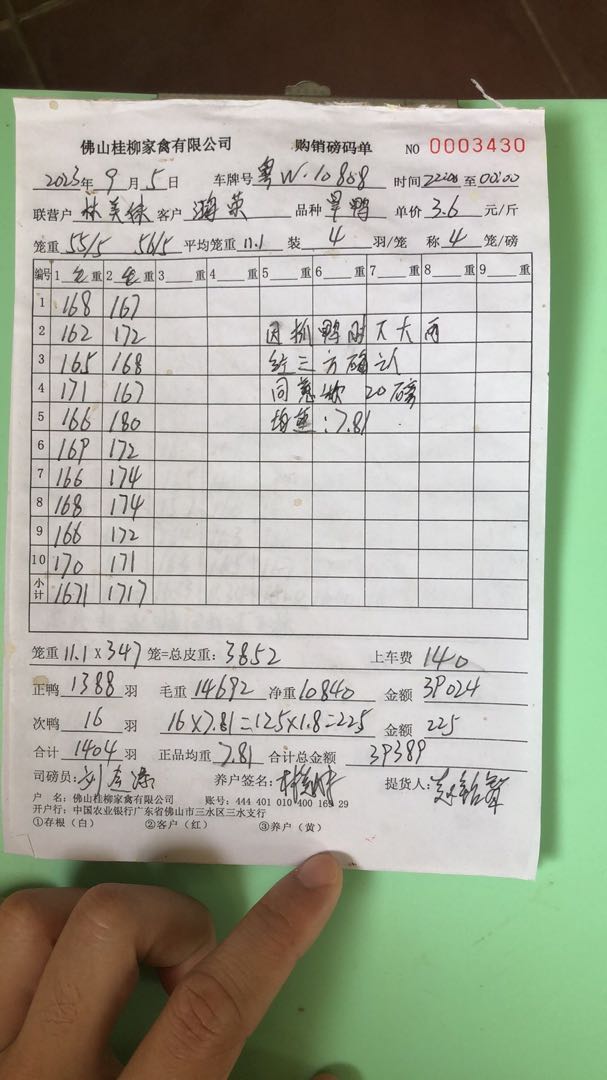 佛山桂柳家禽有限公司 购销磅码单 NO 0003430
2023年 9 月 5 日 车牌号 粤W·10868 时间 22:00 至 00:00
联营户 林美 客户 鸿英 品种 旱鸭 单价 3.6 元/斤
笼重 55/5 56/5 平均笼重 11.1 装 4 羽/笼 称 4 笼/磅
编号 1 毛 重 2 毛 重 3 重 4 重 5 重 6 重 7 重 8 重 9 重
1 168 167
2 162 172 因抓鸭时下大雨
3 165 168 经三方确认
4 171 167 同意称 20磅
5 166 180 均重:7.81
6 169 172
7 166 174
8 168 174
9 166 172
10 170 171
小计 1671 1717
笼重 11.1 X 347 笼=总皮重: 3852 上车费 140
正鸭 1388 羽 毛重 14692 净重 10840 金额 39024
次鸭 16 羽 16×7.81=125×1.8=225 金额 225
合计 1404 羽 正品均重 7.81 合计总金额 39389
司磅员: 养户签名: 提货人:
户 名: 佛山桂柳家禽有限公司 账号: 444 401 010 400 169 29
开户行: 中国农业银行广东省佛山市三水区三水支行
①存根(白) ②客户(红) ③养户(黄)